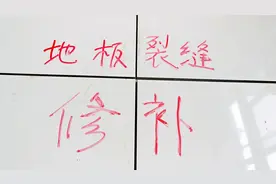 地板裂缝
修补